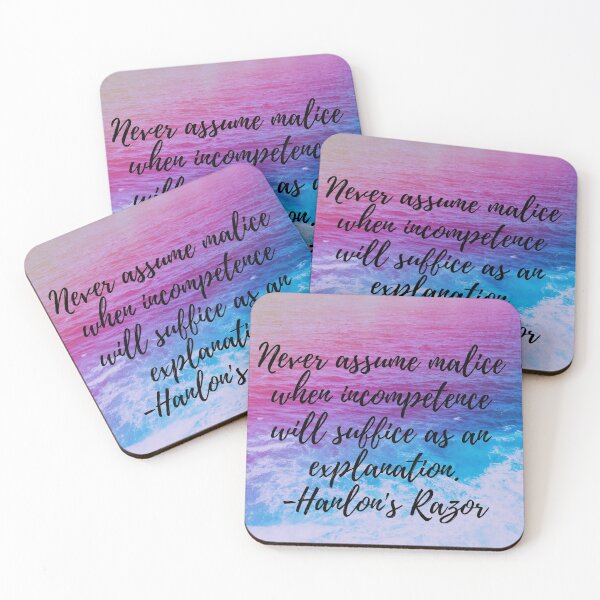 Never assume malice
when incompetence
will as a
Never assume malice
when incompetence
will suffice as an
explanation.
Never assume malice
when incompetence
will suffice as an
-Hanlon's
Never assume malice
when incompetence
will suffice as an
explanation.
-Hanlon's Razor